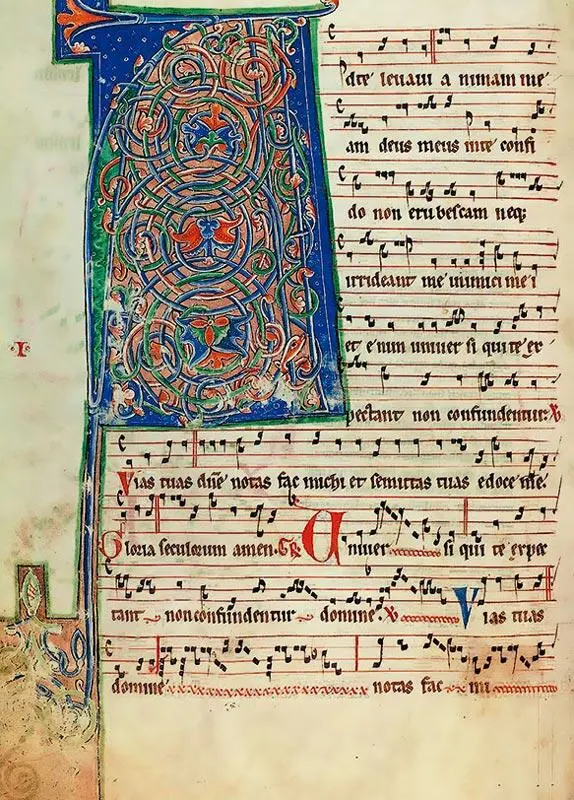 A
dte leuaui animam me
am deus meus in te confi
do non erubescam neq;
irrideant me inimici mei
et enim uniuersi qui te ex
pectant non confundentur: V
Vias tuas dn̄e notas fac michi et semitas tuas edoce me.
Gloria seculorum amen. GR Uniuer si qui te expec
tant non confundentur domine. V Vias tuas
domine notas fac mi
I